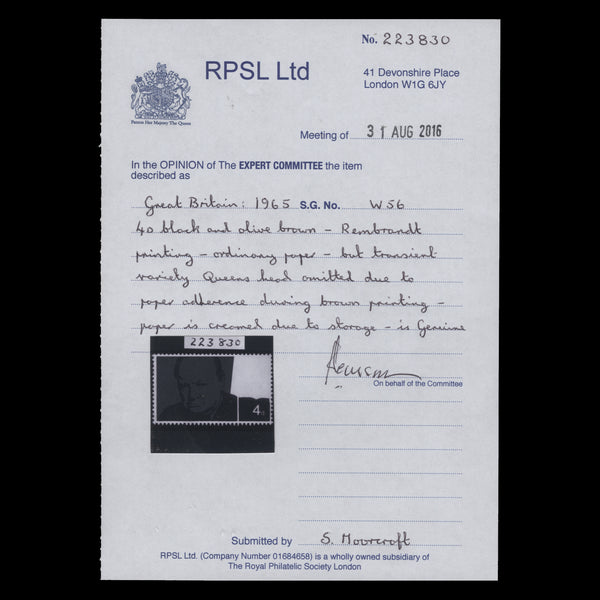 No. 223830
RPSL Ltd
41 Devonshire Place
London W1G 6JY
Patron Her Majesty The Queen
Meeting of 31 AUG 2016
In the OPINION of The EXPERT COMMITTEE the item
described as
Great Britain: 1965 S.G. No. W56
4D black and olive brown - Rembrandt
printing - ordinary paper - but transient
variety Queens head omitted due to
paper adherence during brown printing -
paper is creamed due to storage - is Genuine
223830
4D
On behalf of the Committee
Submitted by S. Moorcroft
RPSL Ltd. (Company Number 01684658) is a wholly owned subsidiary of
The Royal Philatelic Society London